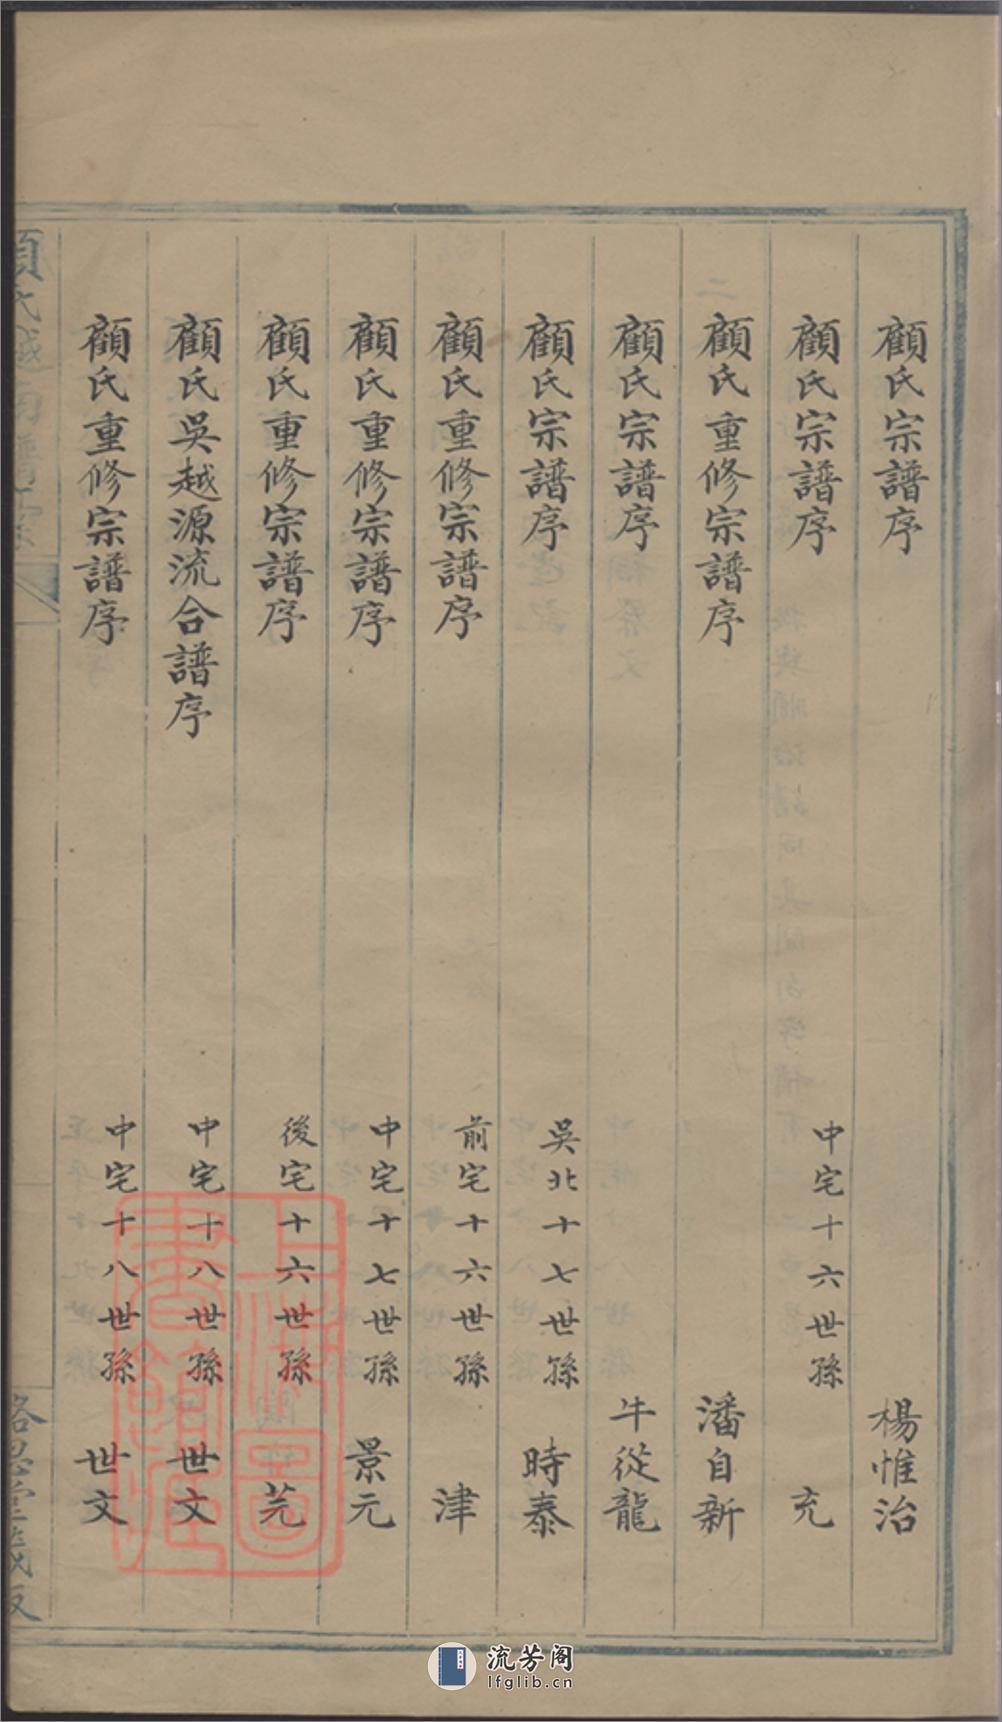 顧氏宗譜序 楊惟治
顧氏宗譜序 中宅十六世孫 充
顧氏重修宗譜序 潘自新
顧氏宗譜序 牛從龍
顧氏宗譜序 吳北十七世孫 時泰
顧氏重修宗譜序 前宅十六世孫 津
顧氏重修宗譜序 中宅十七世孫 景元
顧氏重修宗譜序 後宅十六世孫 芫
顧氏吳越源流合譜序 中宅十八世孫 世文
顧氏重修宗譜序 中宅十八世孫 世文
上海圖書館藏
流芳阁
lfglib.cn